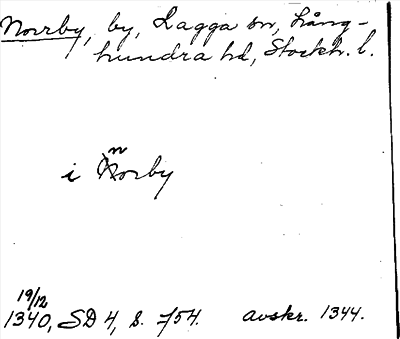 Norrby, by, Lagga sn, Lång-
hundra hd, Stockh. l.
n
i Norby
19/12
1340, SD 4, s. 754. avskr. 1344.